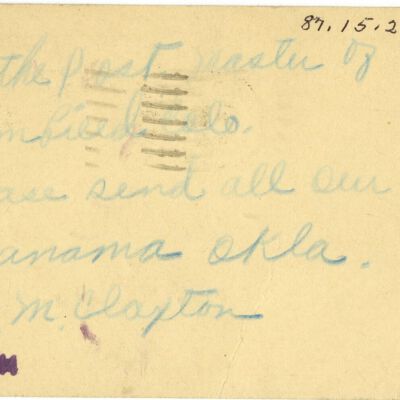 87.15.2
the Post Master of
Colo.
ase send all our
anama Okla.
M. Clayton